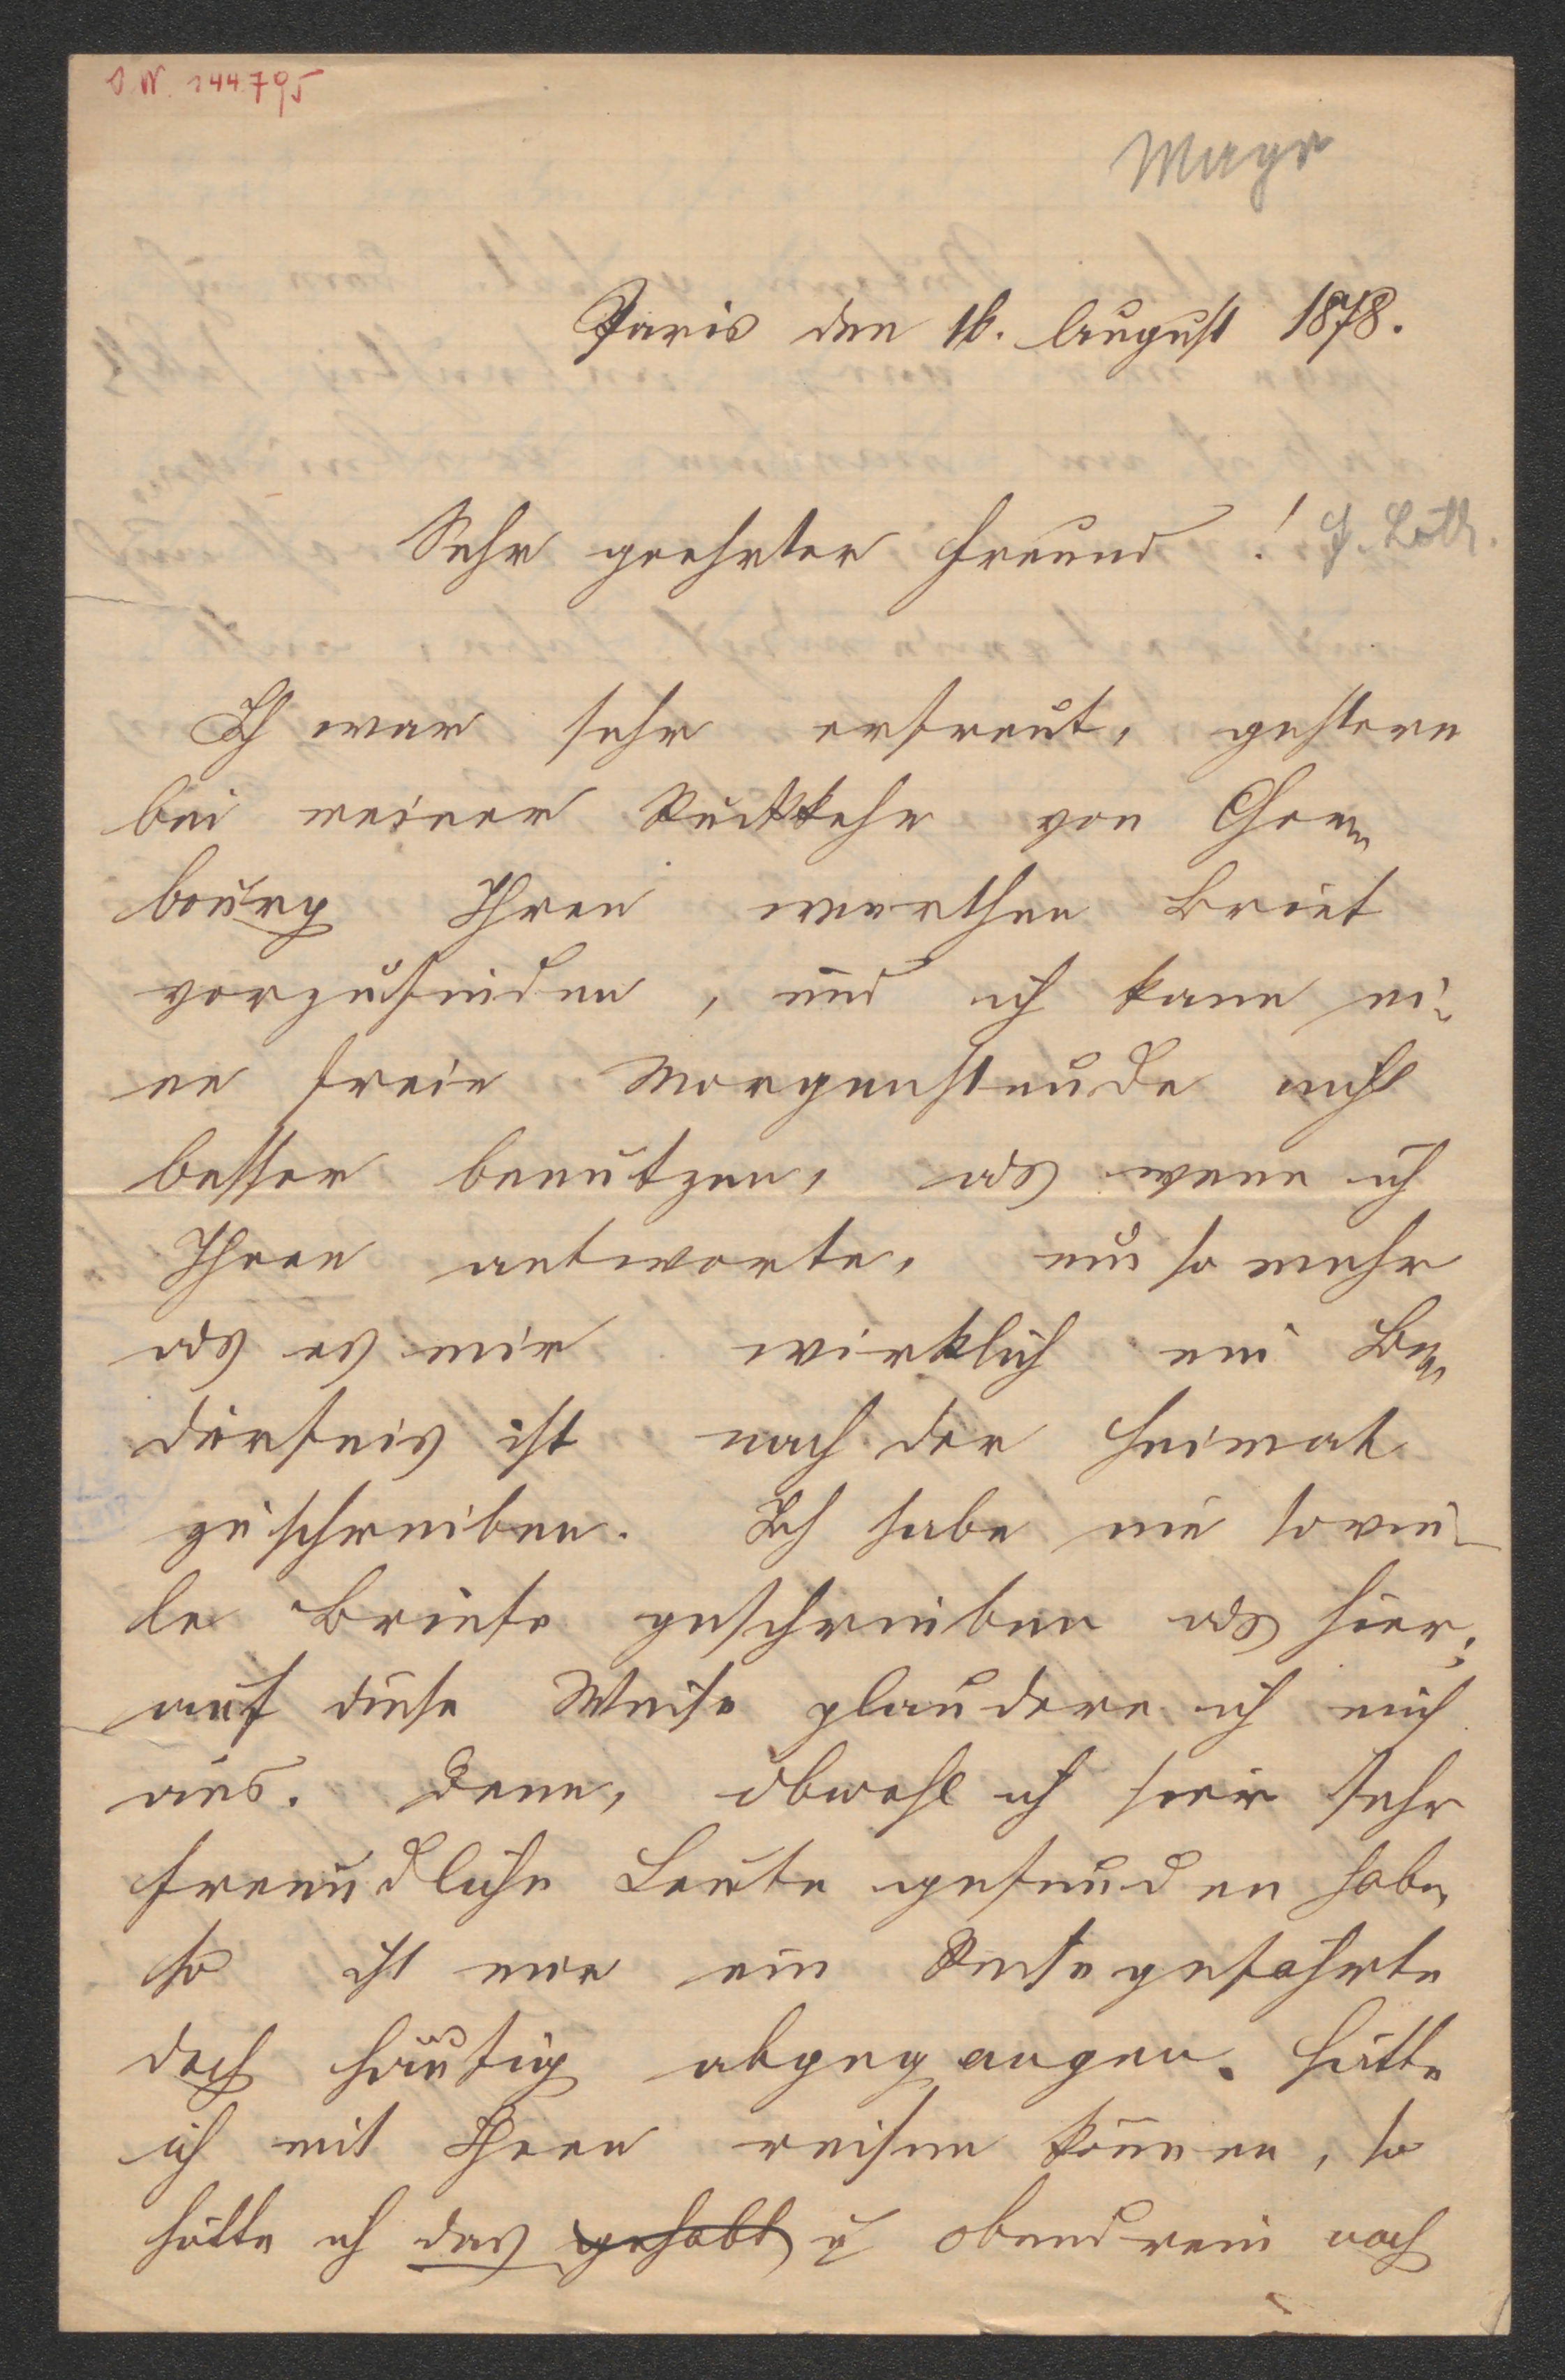 I. N. 144.795
Mayr
Paris den 16. August 1878.
Sehr geehrter Freund! J. Loth.
Ich war sehr erfreut, gestern
bei meiner Rückkehr von Cher-
bourg Ihren werthen Brief
vorzufinden, und ich kann ei-
ne freie Morgenstunde nicht
besser benutzen, als wenn ich
Ihnen antworte, um so mehr
als es mir wirklich ein Be-
dürfnis ist nach der Heimat
zu schreiben. Ich habe nie sovie-
le Briefe geschrieben als hier;
auf diese Weise plaudere ich mich
aus. Denn, obwohl ich hier sehr
freundliche Leute gefunden habe,
so ist mir ein Reisegefährte
doch häufig abgegangen. Hätte
ich mit Ihnen reisen können, so
hätte ich das gehabt u obendrein noch